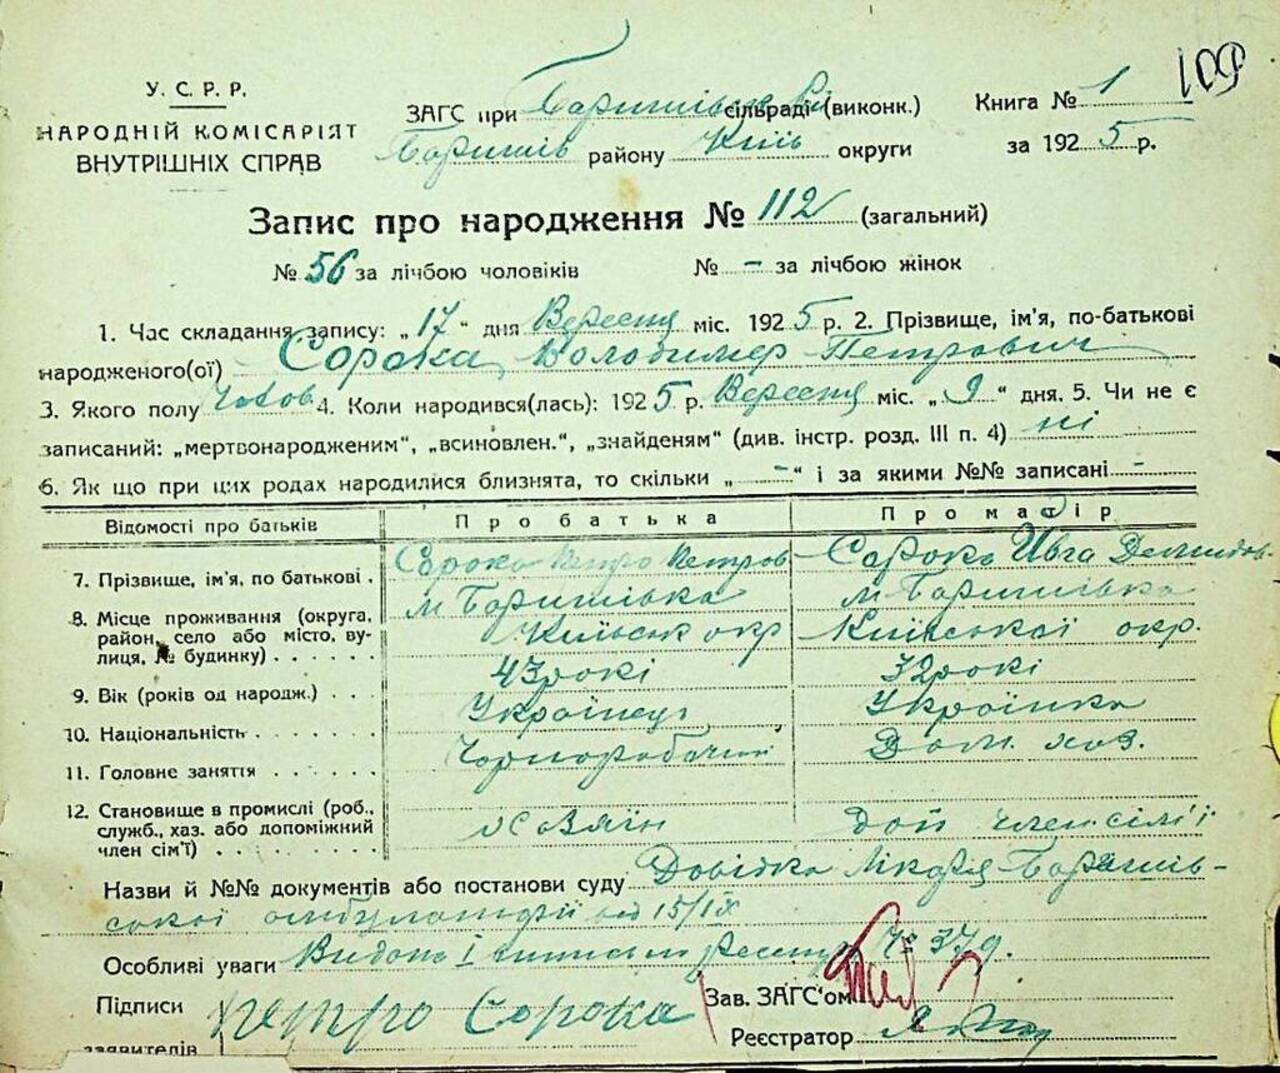 109
У. С. Р. Р.
НАРОДНІЙ КОМІСАРІЯТ
ВНУТРІШНІХ СПРАВ
ЗАГС при Баришівськ сільраді (виконк.)
Баришів району Київ округи
Книга № 1
за 1925 р.
Запис про народження № 112 (загальний)
№ 56 за лічбою чоловіків № - за лічбою жінок
1. Час складання запису: „17“ дня Вересня міс. 1925 р. 2. Прізвище, ім'я, по-батькові
народженого(ої) Сорока Володимер Петрович
3. Якого полу Чолов 4. Коли народився(лась): 1925 р. Вересня міс. „9“ дня. 5. Чи не є
записаний: „мертвонародженим“, „всиновлен.“, „знайденям“ (див. інстр. розд. III п. 4) ні
6. Як що при цих родах народилися близнята, то скільки „-“ і за якими №№ записані -
Відомості про батьків Про батька Про матір
7. Прізвище, ім'я, по батькові . Сорока Петро Петров Сорока Ивга Демидов.
8. Місце проживання (округа, м Баришівка м Баришівка
район, село або місто, ву- Київськ окр Київської окр.
лиця, № будинку) . . . . . .
9. Вік (років од народж.) . . . 43 рокі 32 рокі
10. Національність . . . . . . . Українець Українка
11. Головне заняття . . . . . . Чорноробочий Дом. хоз.
12. Становище в промислі (роб.,
служб., хаз. або допоміжний хозяїн доп член сім'ї
член сім'ї) . . . . . . . . .
Назви й №№ документів або постанови суду Довідка Лікаря Баришів-
ської амбулаторії від 15/IX
Особливі уваги Видано І виписъ реєстр № 379.
Підписи Петро Сорока Зав. ЗАГС'ом
заявителів Реєстратор